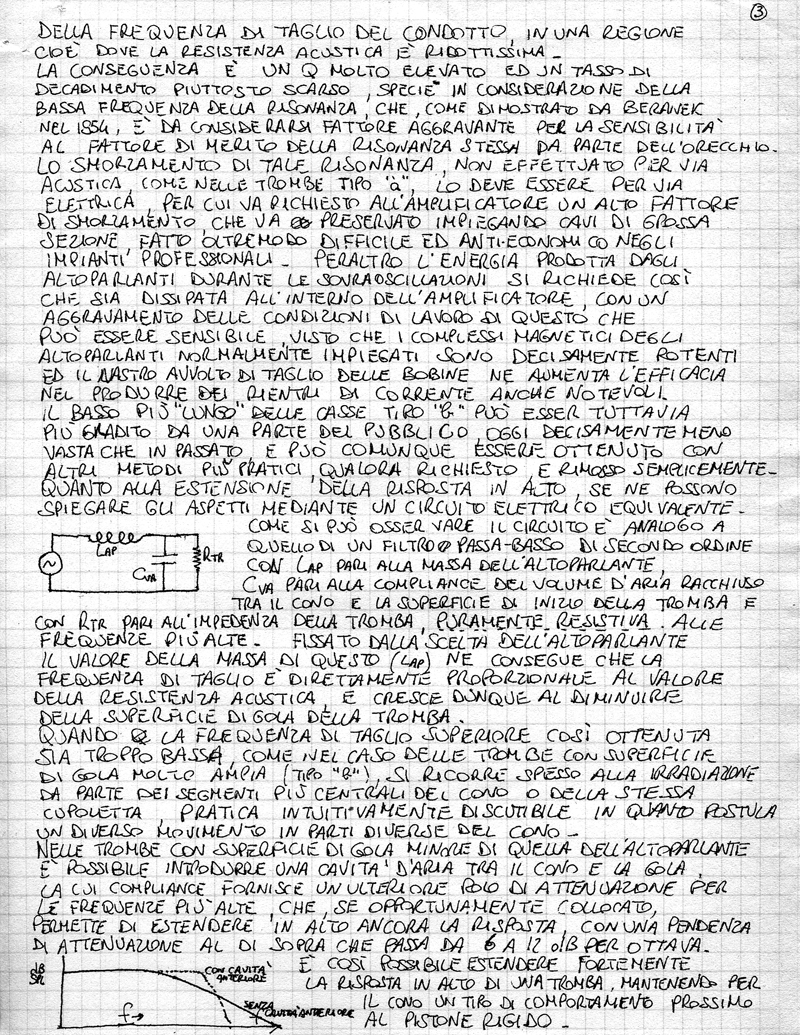 3
DELLA FREQUENZA DI TAGLIO DEL CONDOTTO, IN UNA REGIONE
CIOÈ DOVE LA RESISTENZA ACUSTICA È RIDOTTISSIMA.
LA CONSEGUENZA È UN Q MOLTO ELEVATO ED UN TASSO DI
DECADIMENTO PIUTTOSTO SCARSO, SPECIE IN CONSIDERAZIONE DELLA
BASSA FREQUENZA DELLA RISONANZA, CHE, COME DIMOSTRATO DA BERANEK
NEL 1954, È DA CONSIDERARSI FATTORE AGGRAVANTE PER LA SENSIBILITÀ
AL FATTORE DI MERITO DELLA RISONANZA STESSA DA PARTE DELL'ORECCHIO.
LO SMORZAMENTO DI TALE RISONANZA, NON EFFETTUATO PER VIA
ACUSTICA, COME NELLE TROMBE TIPO "a", LO DEVE ESSERE PER VIA
ELETTRICA, PER CUI VA RICHIESTO ALL'AMPLIFICATORE UN ALTO FATTORE
DI SMORZAMENTO, CHE VA PRESERVATO IMPIEGANDO CAVI DI GROSSA
SEZIONE FATTO OLTREMODO DIFFICILE ED ANTI-ECONOMICO NEGLI
IMPIANTI PROFESSIONALI. PERALTRO L'ENERGIA PRODOTTA DAGLI
ALTOPARLANTI DURANTE LE SOVRAOSCILLAZIONI SI RICHIEDE COSÌ
CHE SIA DISSIPATA ALL'INTERNO DELL'AMPLIFICATORE, CON UN
AGGRAVAMENTO DELLE CONDIZIONI DI LAVORO DI QUESTO CHE
PUÒ ESSERE SENSIBILE, VISTO CHE I COMPLESSI MAGNETICI DEGLI
ALTOPARLANTI NORMALMENTE IMPIEGATI SONO DECISAMENTE POTENTI
ED IL NASTRO AVVOLTO DI TAGLIO DELLE BOBINE NE AUMENTA L'EFFICACIA
NEL PRODURRE DEI RIENTRI DI CORRENTE ANCHE NOTEVOLI.
IL BASSO PIÙ "LUNGO" DELLE CASSE TIPO "B" PUÒ ESSER TUTTAVIA
PIÙ GRADITO DA UNA PARTE DEL PUBBLICO, OGGI DECISAMENTE MENO
VASTA CHE IN PASSATO, E PUÒ COMUNQUE ESSERE OTTENUTO CON
ALTRI METODI PIÙ PRATICI, QUALORA RICHIESTO E RIMOSSO SEMPLICEMENTE.
QUANTO ALLA ESTENSIONE DELLA RISPOSTA IN ALTO, SE NE POSSONO
SPIEGARE GLI ASPETTI MEDIANTE UN CIRCUITO ELETTRICO EQUIVALENTE.
LAP CVA RTR
COME SI PUÒ OSSERVARE IL CIRCUITO È ANALOGO A
QUELLO DI UN FILTRO PASSA-BASSO DI SECONDO ORDINE
CON LAP PARI ALLA MASSA DELL'ALTOPARLANTE,
CVA PARI ALLA COMPLIANCE DEL VOLUME D'ARIA RACCHIUSO
TRA IL CONO E LA SUPERFICIE DI INIZIO DELLA TROMBA E
CON RTR PARI ALL'IMPEDENZA DELLA TROMBA, PURAMENTE RESISTIVA ALLE
FREQUENZE PIÙ ALTE. FISSATO DALLA SCELTA DELL'ALTOPARLANTE
IL VALORE DELLA MASSA DI QUESTO (LAP) NE CONSEGUE CHE LA
FREQUENZA DI TAGLIO È DIRETTAMENTE PROPORZIONALE AL VALORE
DELLA RESISTENZA ACUSTICA, E CRESCE DUNQUE AL DIMINUIRE
DELLA SUPERFICIE DI GOLA DELLA TROMBA.
QUANDO LA FREQUENZA DI TAGLIO SUPERIORE COSÌ OTTENUTA
SIA TROPPO BASSA, COME NEL CASO DELLE TROMBE CON SUPERFICIE
DI GOLA MOLTO AMPIA (TIPO "B"), SI RICORRE SPESSO ALLA IRRADIAZIONE
DA PARTE DEI SEGMENTI PIÙ CENTRALI DEL CONO O DELLA STESSA
CUPOLETTA, PRATICA INTUITIVAMENTE DISCUTIBILE IN QUANTO POSTULA
UN DIVERSO MOVIMENTO IN PARTI DIVERSE DEL CONO.
NELLE TROMBE CON SUPERFICIE DI GOLA MINORE DI QUELLA DELL'ALTOPARLANTE
È POSSIBILE INTRODURRE UNA CAVITÀ D'ARIA TRA IL CONO E LA GOLA,
LA CUI COMPLIANCE FORNISCE UN ULTERIORE POLO DI ATTENUAZIONE PER
LE FREQUENZE PIÙ ALTE, CHE, SE OPPORTUNAMENTE COLLOCATO,
PERMETTE DI ESTENDERE IN ALTO ANCORA LA RISPOSTA, CON UNA PENDENZA
DI ATTENUAZIONE AL DI SOPRA CHE PASSA DA 6 A 12 dB PER OTTAVA.
dB
CON CAVITÀ
ANTERIORE
SENZA
CAVITÀ ANTERIORE
f→
È COSÌ POSSIBILE ESTENDERE FORTEMENTE
LA RISPOSTA IN ALTO DI UNA TROMBA, MANTENENDO PER
IL CONO UN TIPO DI COMPORTAMENTO PROSSIMO
AL PISTONE RIGIDO.